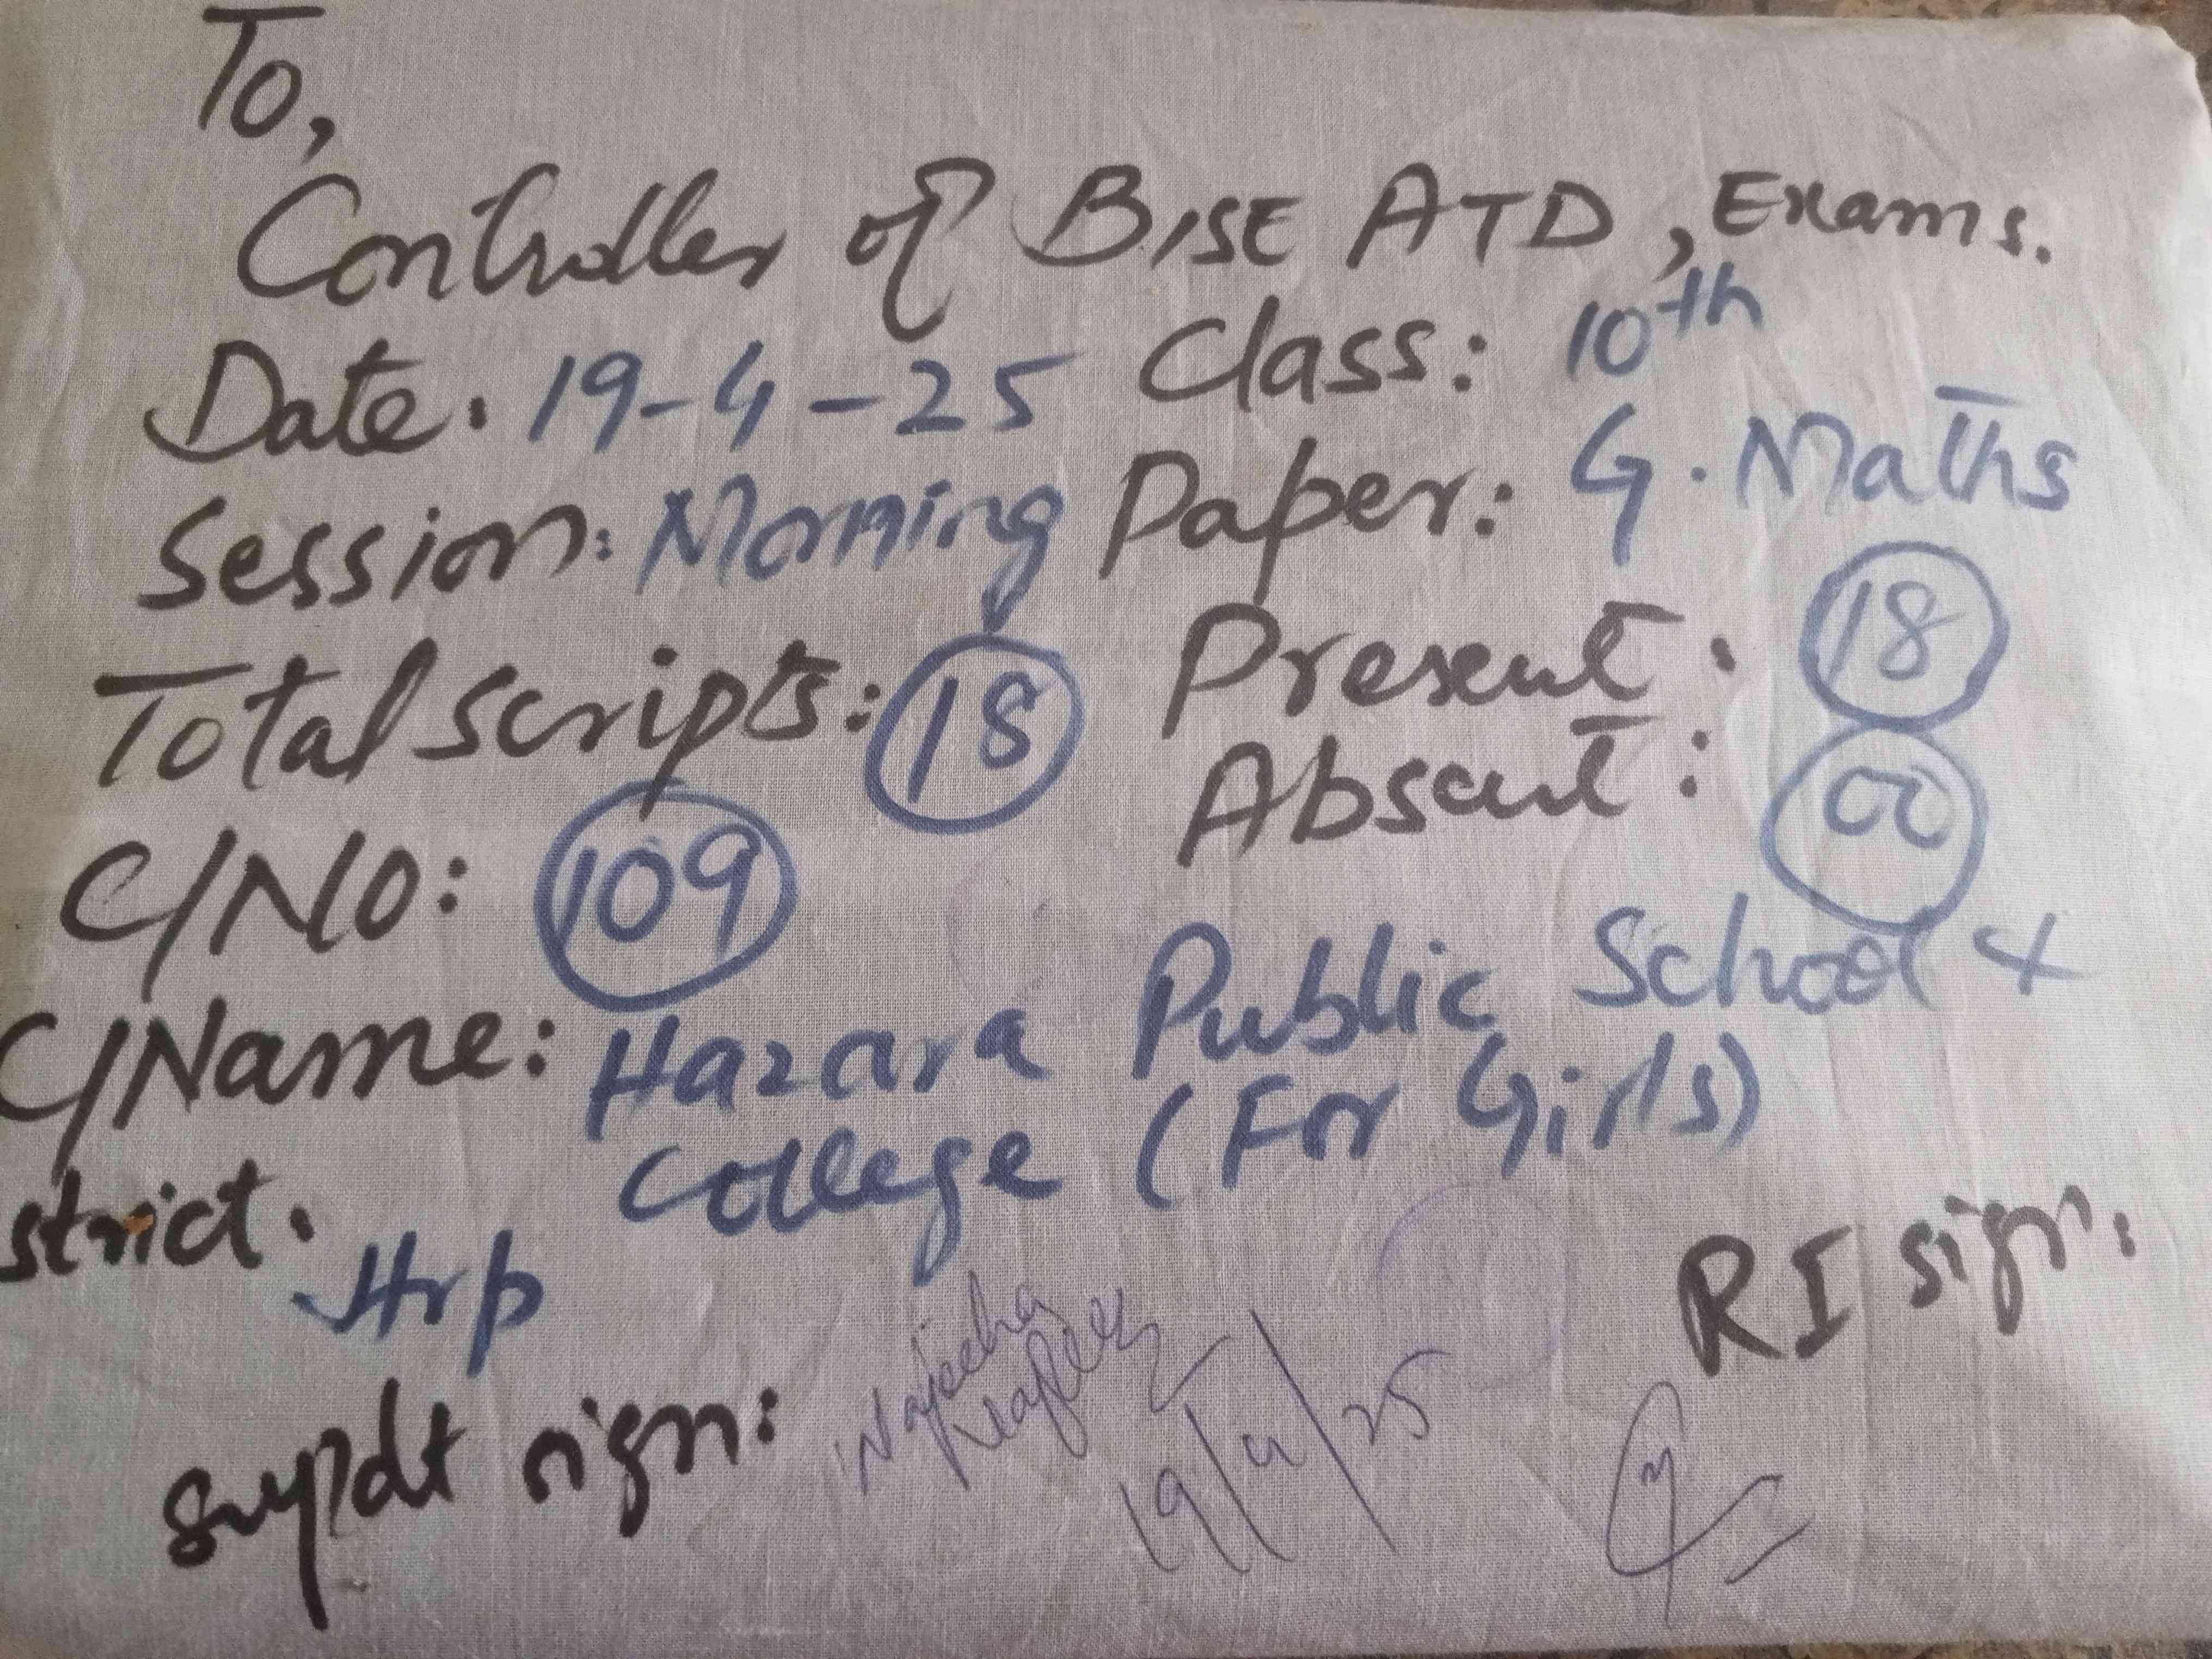 To,
Controller of BISE ATD, Exams.
Date: 19-4-25 Class: 10th
Session: Morning Paper: G. Maths
Total scripts: 18 Present: 18
Absent: 00
C/No: 109
C/Name: Hazara Public School &
College (For Girls)
strict.
Hrp
RI sign:
supdt sign:
19/4/25